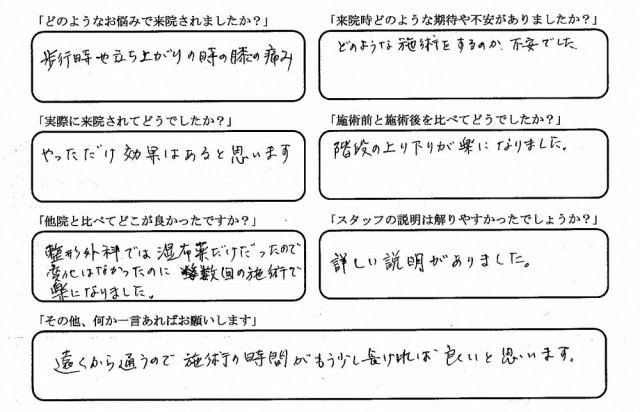 「どのようなお悩みで来院されましたか？」
歩行時や立ち上がりの時の膝の痛み
「来院時どのような期待や不安がありましたか？」
どのような施術をするのか、不安でした。
「実際に来院されてどうでしたか？」
やっただけ効果はあると思います
「施術前と施術後を比べてどうでしたか？」
階段の上り下りが楽になりました。
「他院と比べてどこが良かったですか？」
整形外科では湿布薬だけだったので
変化はなかったのに数回の施術で
楽になりました。
「スタッフの説明は解りやすかったでしょうか？」
詳しい説明がありました。
「その他、何か一言あればお願いします」
遠くから通うので施術の時間がもう少し長ければ良いと思います。